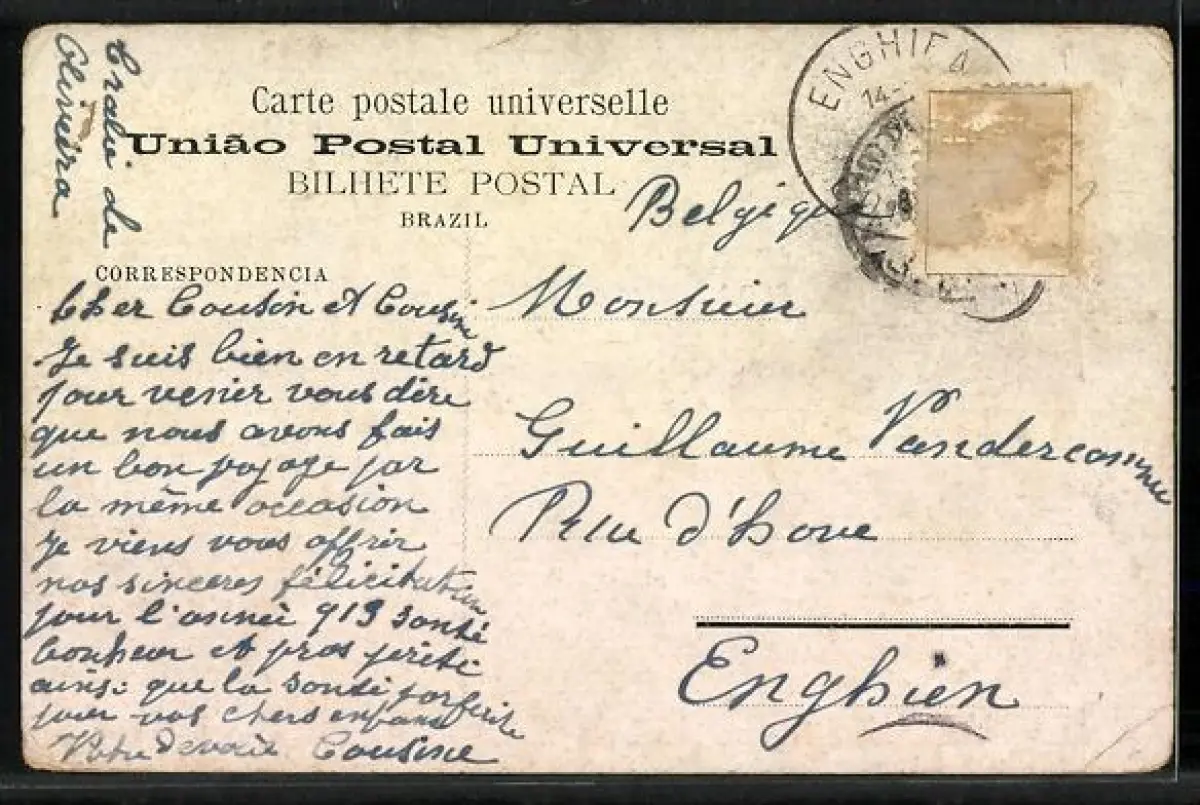 Carte postale universelle
União Postal Universal
BILHETE POSTAL
BRAZIL
CORRESPONDENCIA
de
Oliveira
Cher Cousin et Cousine
Je suis bien en retard
pour venier vous dire
que nous avons fais
un bon voyage par
la même occasion
Je viens vous offrir
nos sinceres félicitation
pour l'année 913 santé
bonheur et prosperité
ainsi que la santé parfaite
pour vos chers enfants
Votre Cousine
ENGHIEN
14-
Belgique
Monsieur
Guillaume
Rue d'hove
Enghien